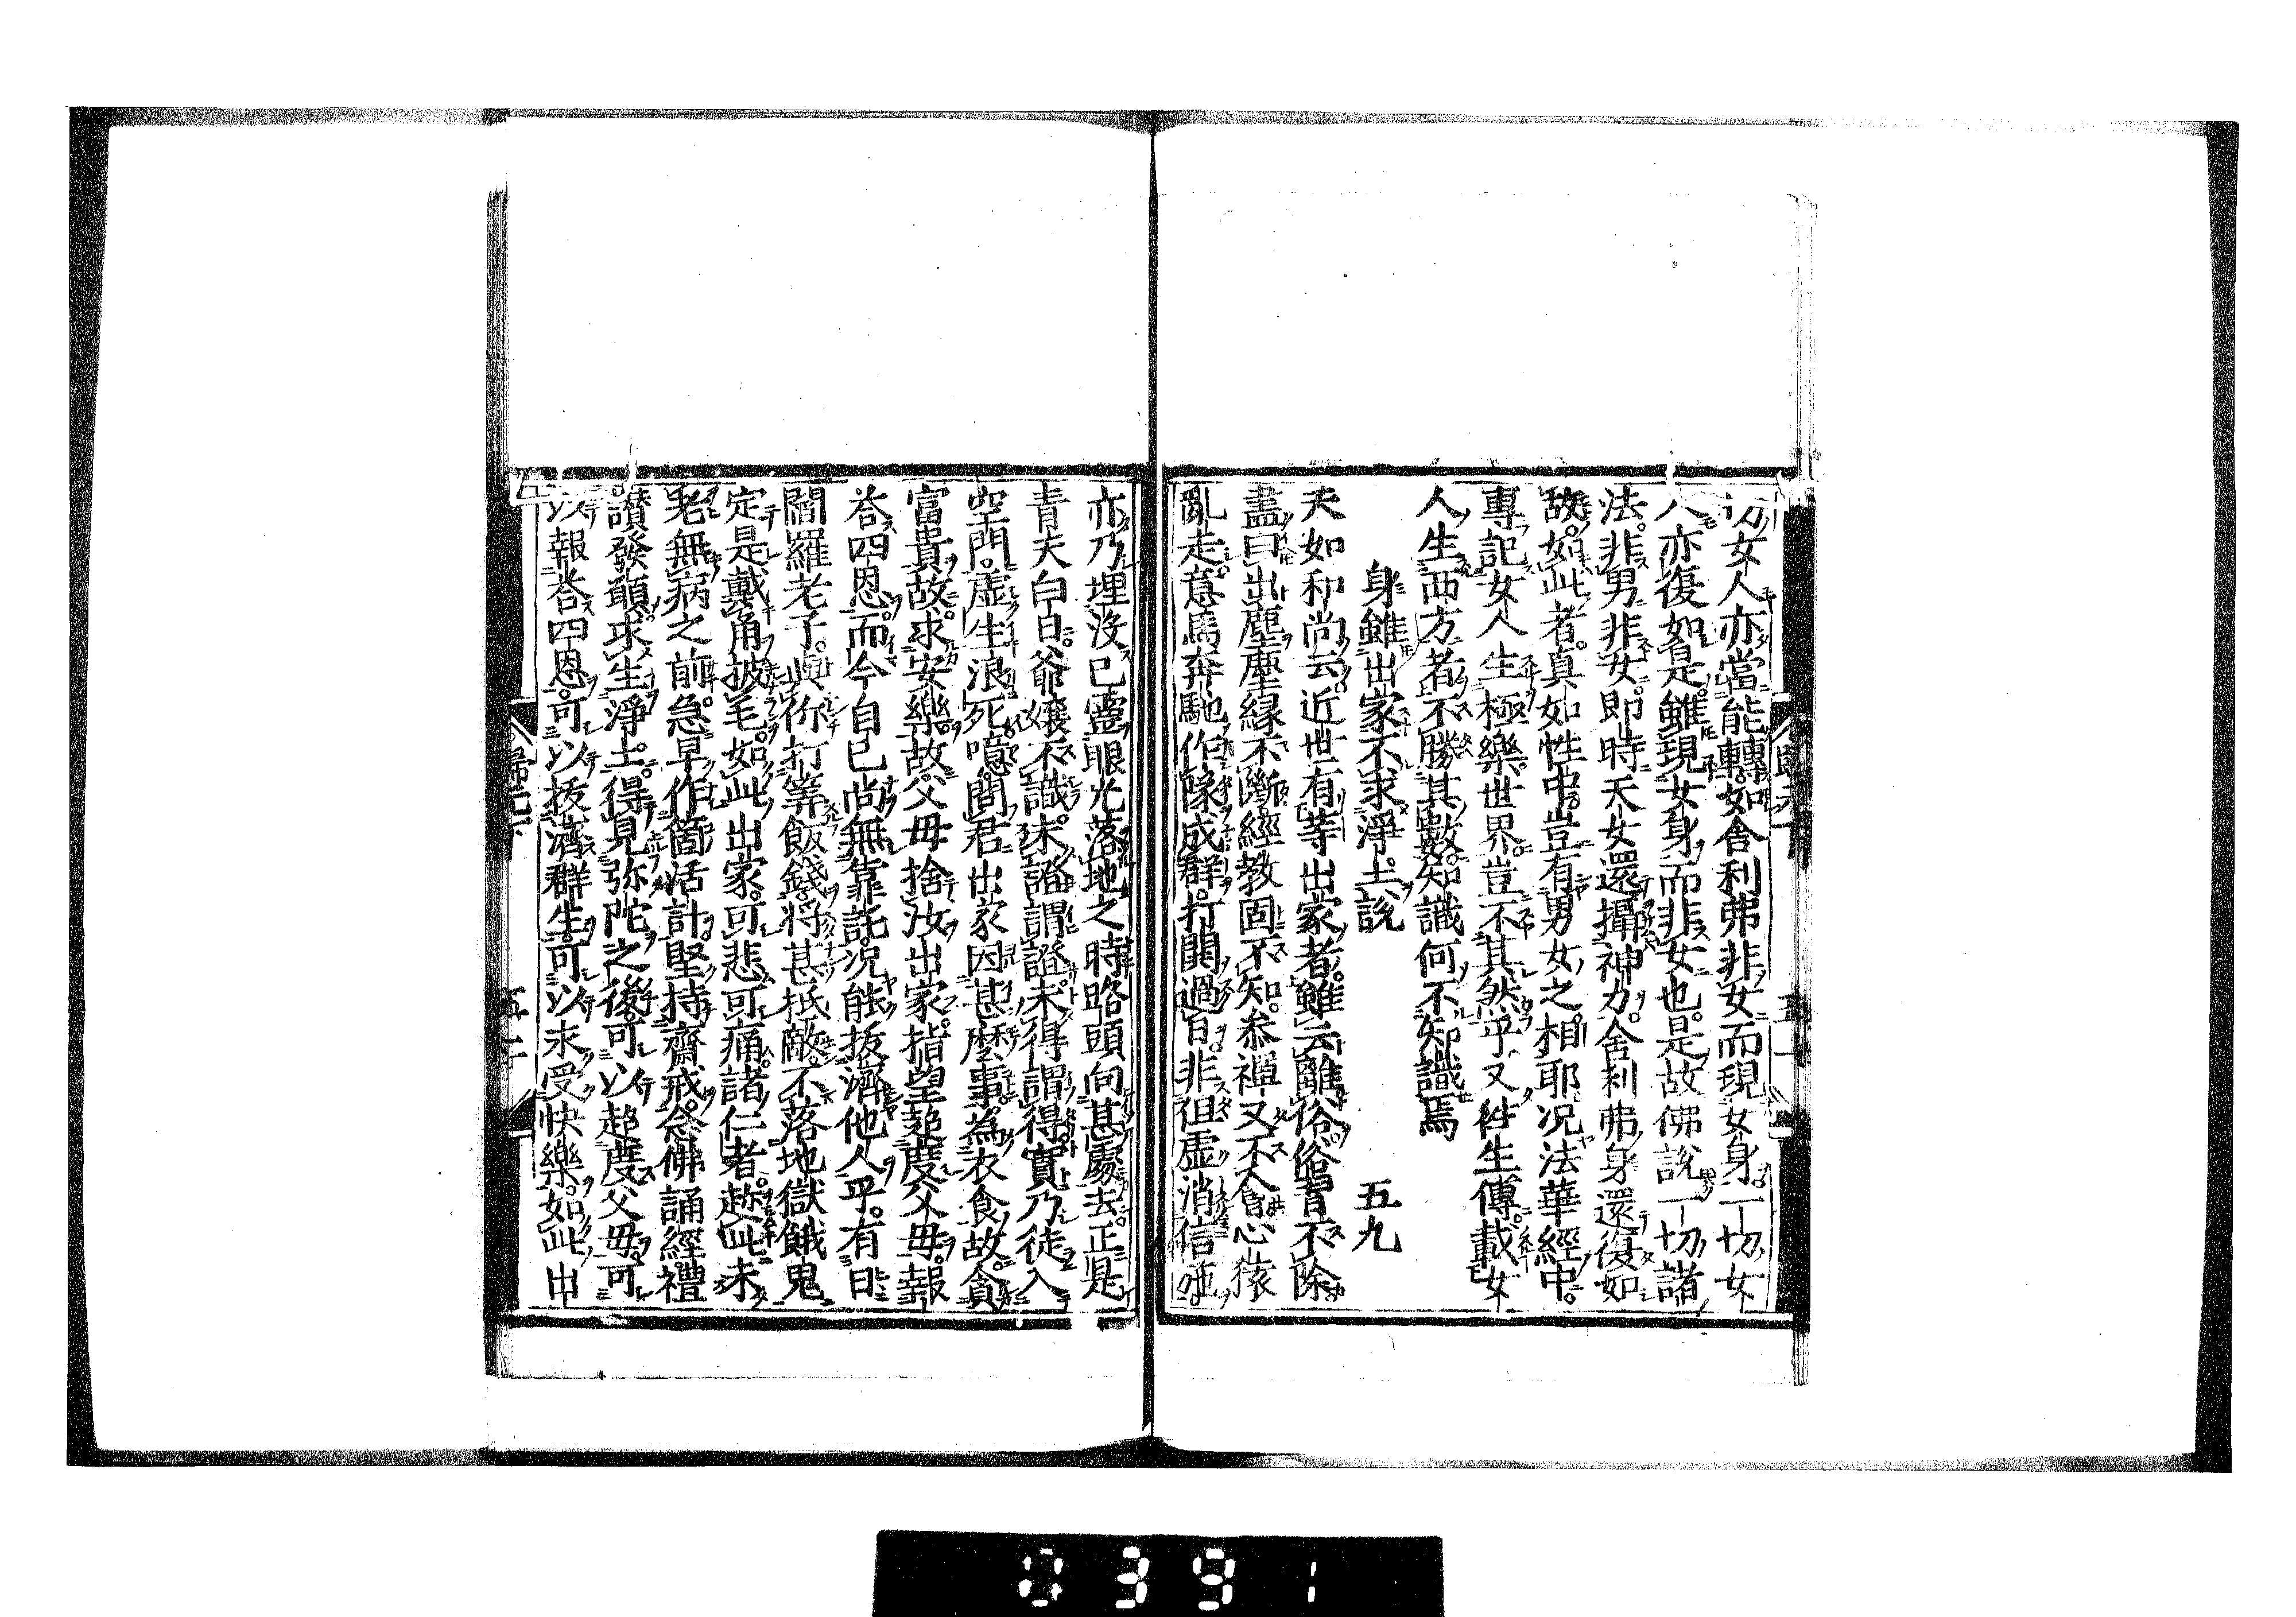 切女人亦當能轉。如舍利弗非女而現女身。一切女
人亦復如是。雖現女身而非女也。是故佛說一切諸
法。非男非女。即時天女還攝神力。舍利弗身還復如
故。如此者。真如性中。豈有男女之相耶。况法華經中。
專記女人生極樂世界。豈不其然乎。又往生傳。載女
人生西方者。不勝其數。知識何不知識焉
身雖出家不求淨土說 五九
天如和尚云。近世有等出家者。雖云離俗。俗習不除。
盡曰出塵。塵緣不斷。經教固不知。参禪又不會。心猿
亂走。意馬奔馳。作隊成群。打鬨過日。非但虛消信施。
亦乃埋没己靈。眼光落地之時。路頭向甚處去。正是
青天白日。爺孃不識。未證謂證。未得謂得。實乃徒入
空門。虛生浪死。噫。問君出家因甚麼事。為衣食故。貪
富貴故。求安樂故。父毋捨汝出家。指望超度父毋。報
答四恩。而今自己尚無靠託。况能拔濟他人乎。有日
閻羅老子。與你打筭飯錢。將甚抵敵。不落地獄餓鬼。
定是戴角披毛。如此出家。可悲可痛。諸仁者。趂此未
老無病之前。急早作箇活計。堅持齋戒。念佛誦經。禮
讃發願。求生淨土。得見弥陀之後。可以超度父毋。可
以報答四恩。可以拔濟群生。可以永受快樂。如此出
歸元下
五十
0391